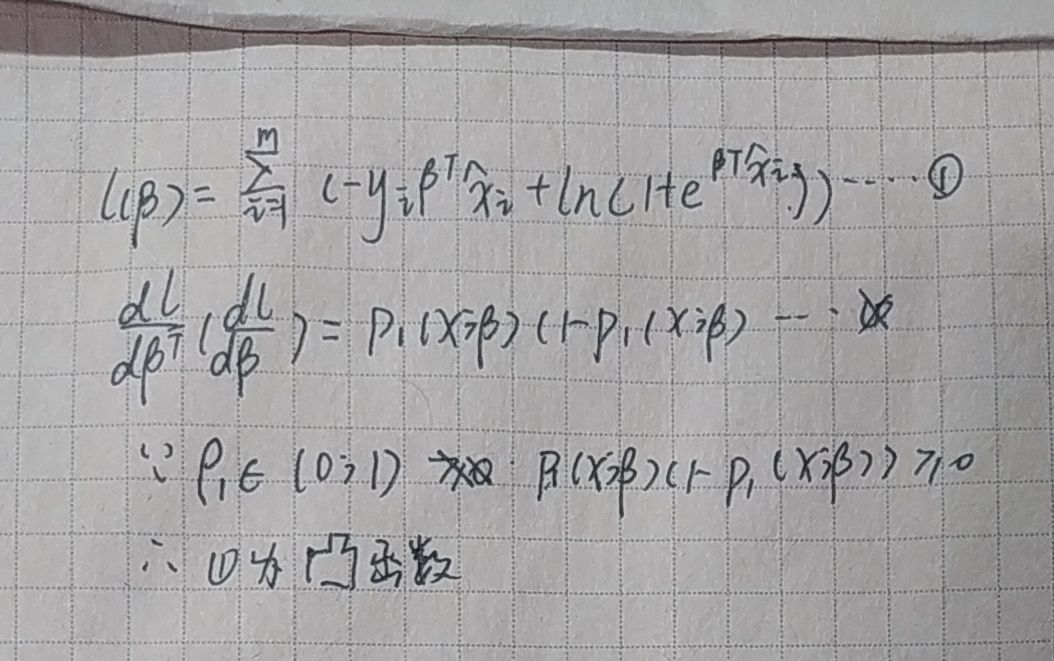 l(β) = Σ_{i=1}^{m} (-y_i β^T x̂_i + ln(1+e^{β^T x̂_i})) ······ ①
dl/dβ^T (dl/dβ) = p_1(x;β)(1-p_1(x;β) ···
∵ p_1 ∈ (0;1) p_1(x;β)(1-p_1(x;β)) ≥ 0
∴ ①为凸函数